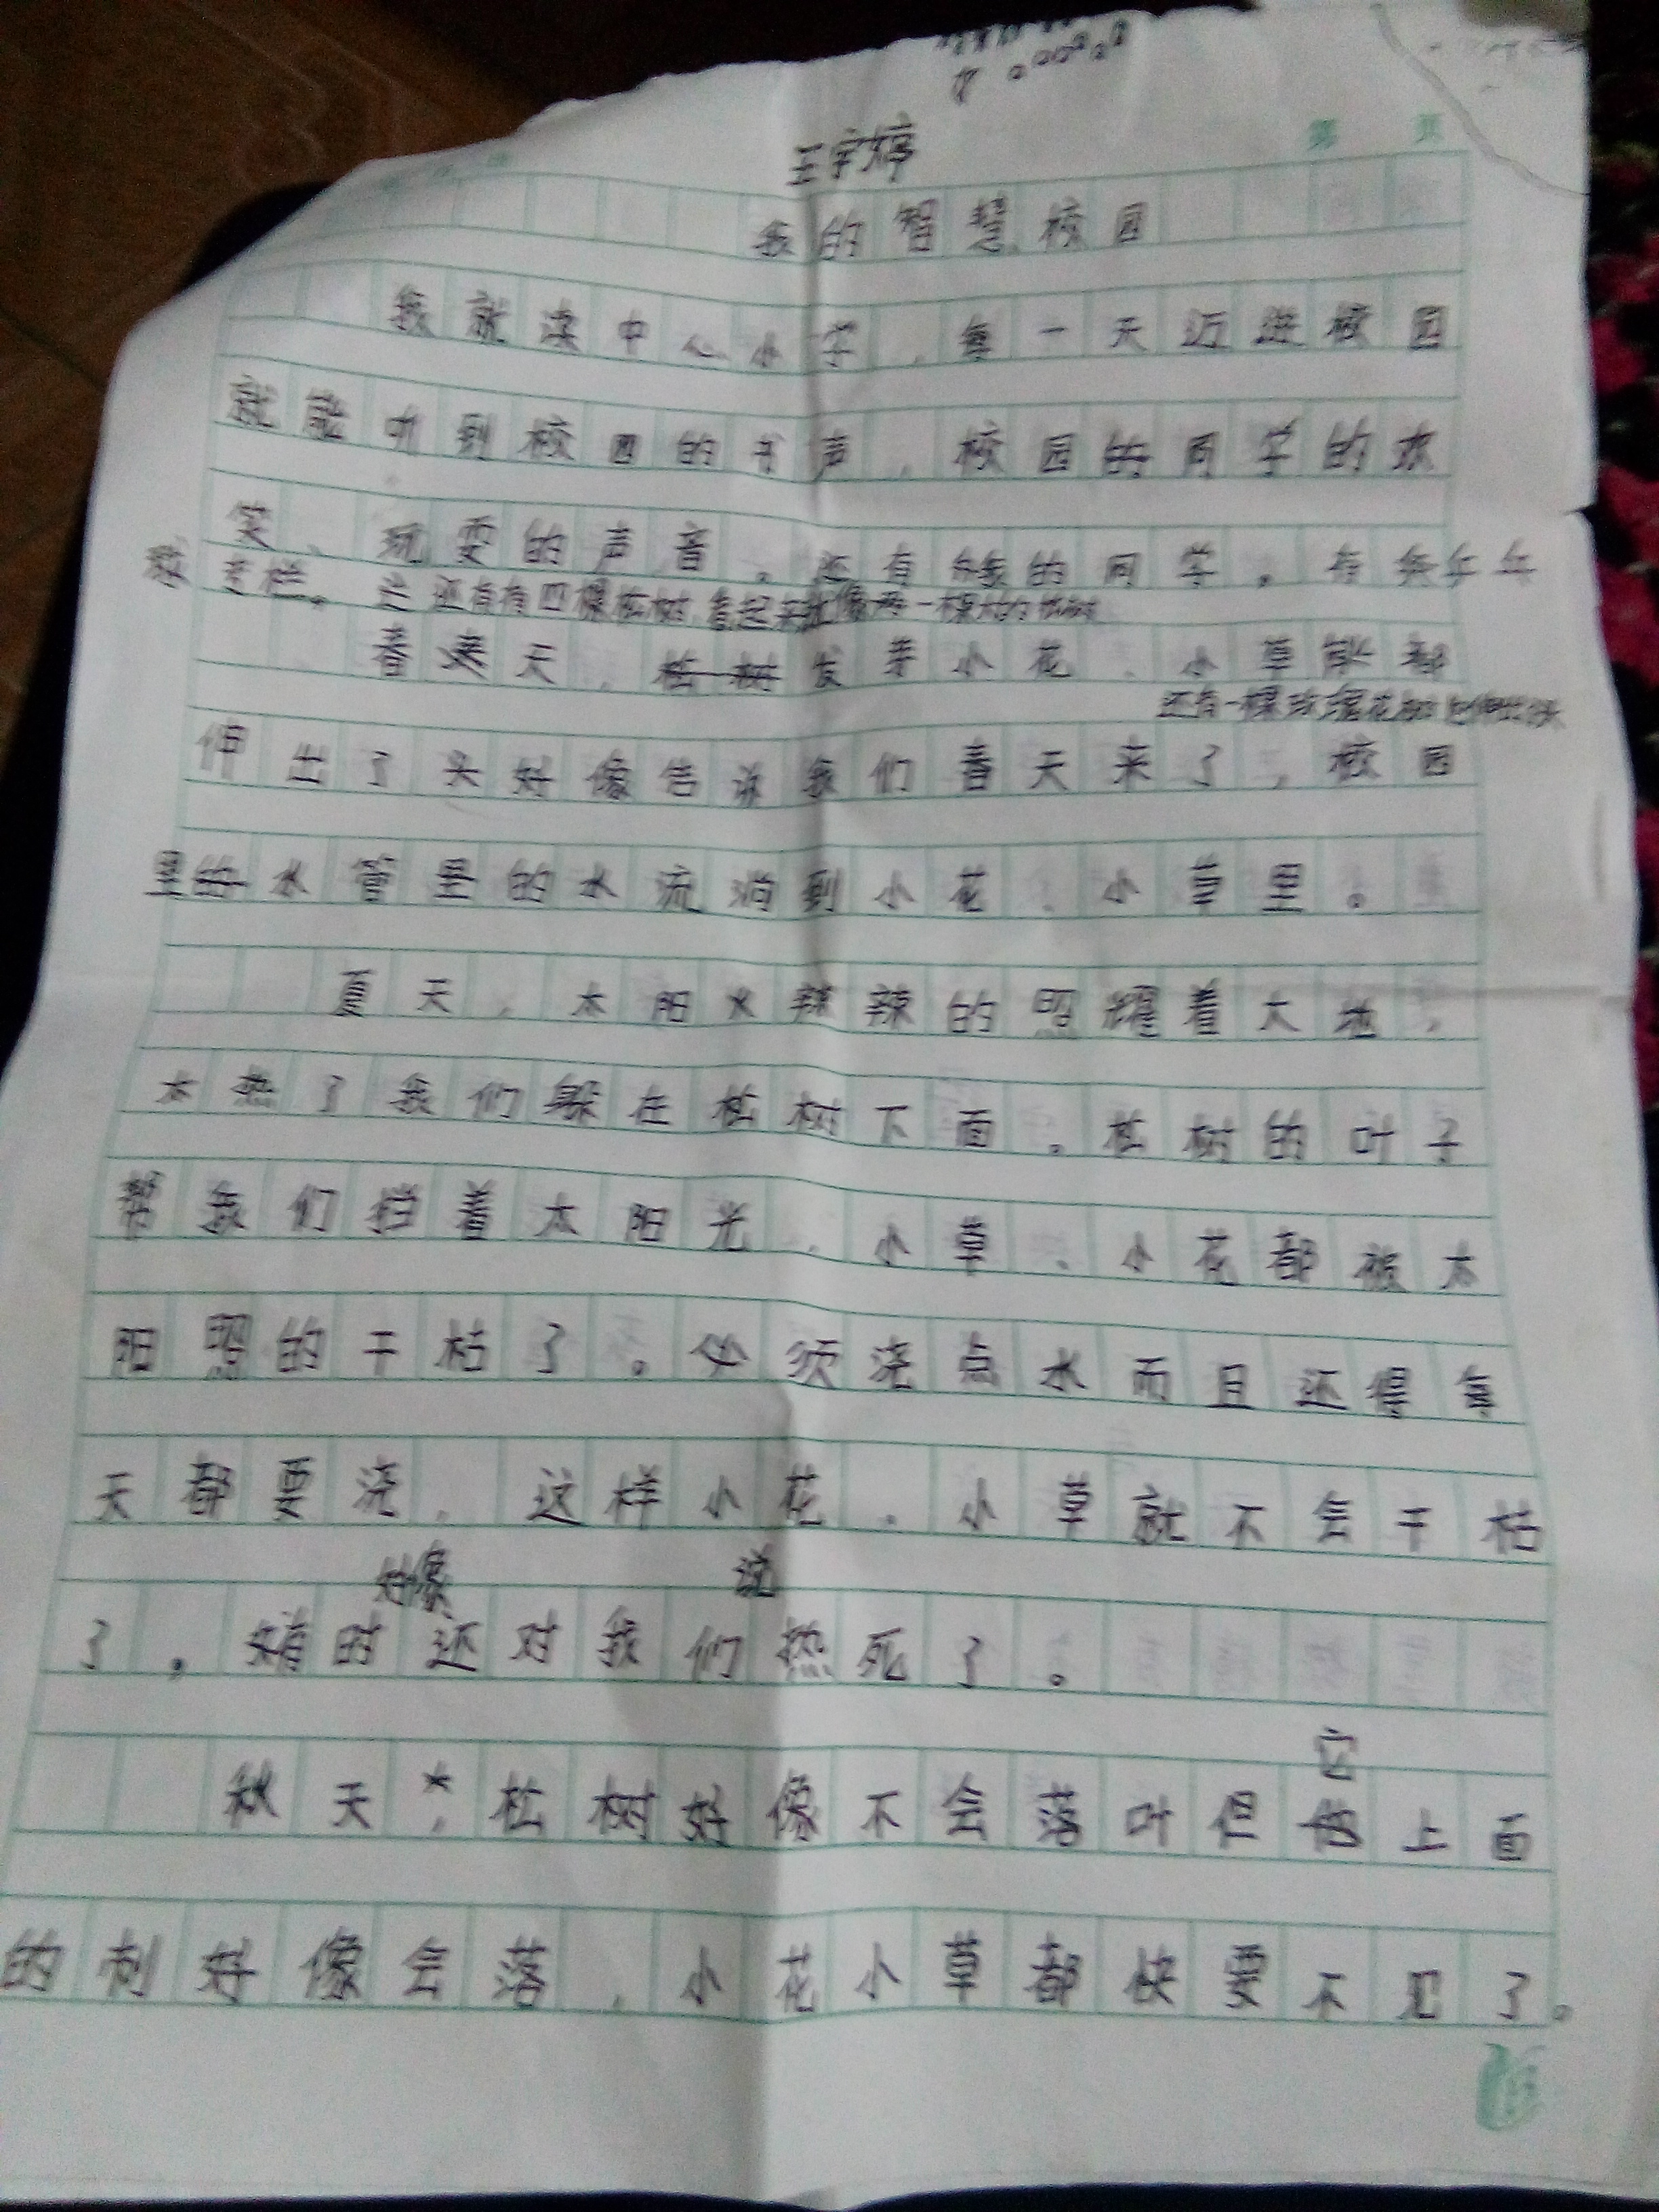 王宇婷
第 页
我的智慧校园
我就读中心小学,每一天迈进校园
就能听到校园的书声,校园的同学的欢
笑、玩耍的声音。还有的同学。有
还有有四棵松树,看起来就像一棵大的松树
春天,发芽小花、小草都
还有一棵玫瑰花
伸出了头好像告诉我们春天来了,校园
里的水管里的水流淌到小花、小草里。
夏天,太阳火辣辣的照耀着大地,
太热了我们躲在松树下面。松树的叶子
帮我们挡着太阳光、小草、小花都被太
阳照的干枯了。必须浇点水而且还得每
天都要浇,这样小花、小草就不会干枯
好像 说
了。有时还对我们热死了。
它
秋天,松树好像不会落叶但上面
的刺好像会落,小花小草都快要不见了。